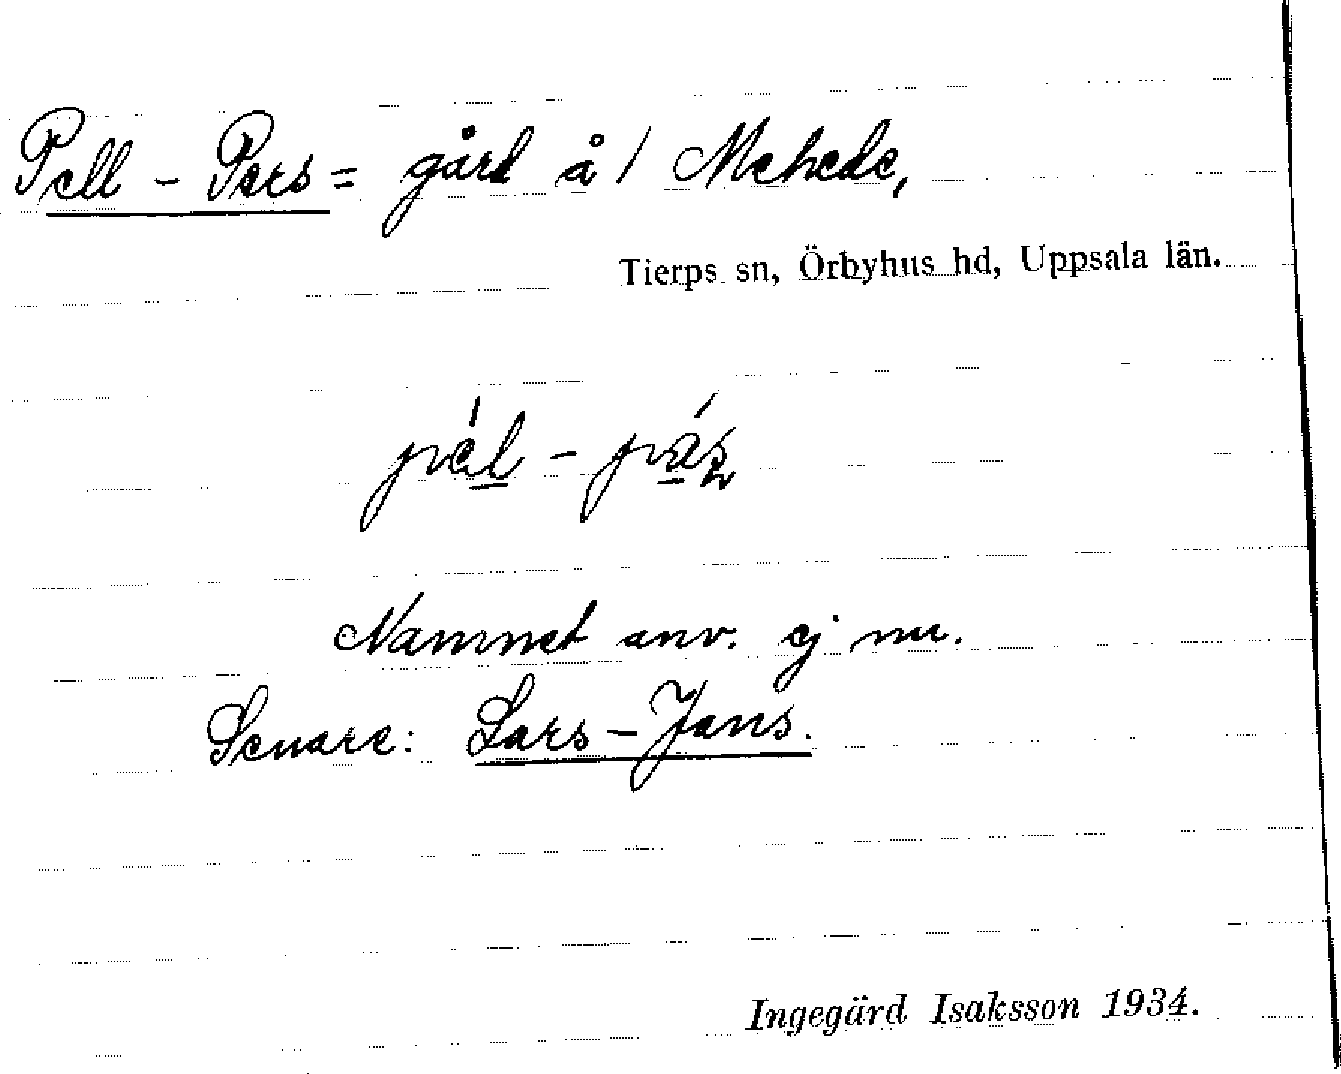 Pell - Pers = gård å 1 Mehede,
Tierps sn, Örbyhus hd, Uppsala län.
Namnet anv. ej nu.
Senare: Lars-Jans.
Ingegärd Isaksson 1934.